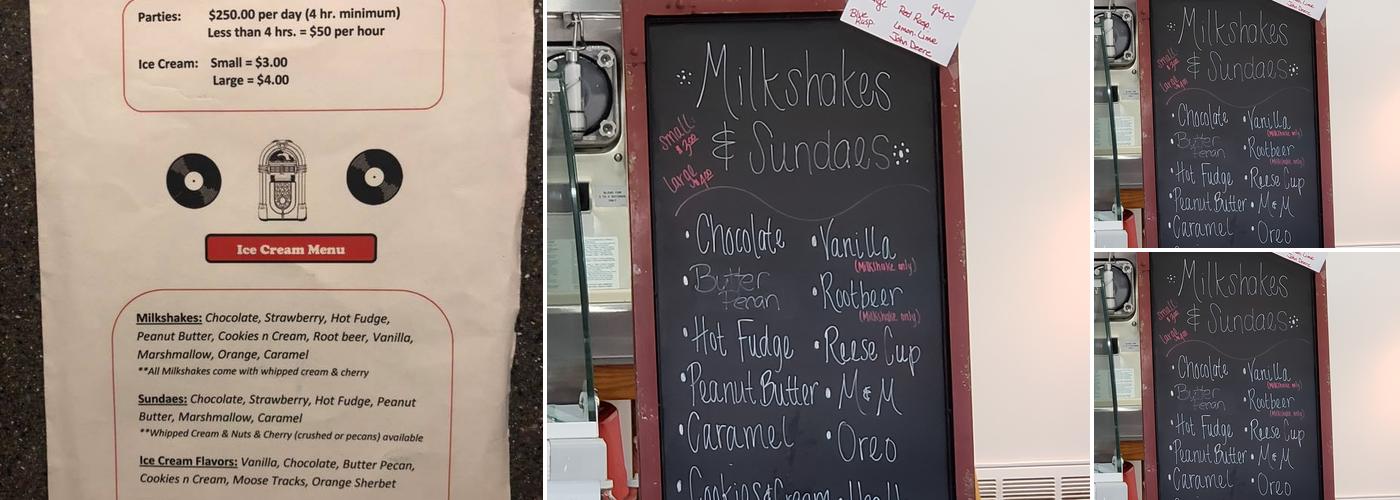 Parties: $250.00 per day (4 hr. minimum)
Less than 4 hrs. = $50 per hour
Ice Cream: Small = $3.00
Large = $4.00
Ice Cream Menu
Milkshakes: Chocolate, Strawberry, Hot Fudge,
Peanut Butter, Cookies n Cream, Root beer, Vanilla,
Marshmallow, Orange, Caramel
**All Milkshakes come with whipped cream & cherry
Sundaes: Chocolate, Strawberry, Hot Fudge, Peanut
Butter, Marshmallow, Caramel
**Whipped Cream & Nuts & Cherry (crushed or pecans) available
Ice Cream Flavors: Vanilla, Chocolate, Butter Pecan,
Cookies n Cream, Moose Tracks, Orange Sherbet
grape
Blue Rasp.
Red Rasp.
Lemon-Lime
John Deere
Milkshakes
& Sundaes
Small
$3.00
Large
$4.00
• Chocolate • Vanilla
(Milkshake only)
• Butter Pecan • Rootbeer
(Milkshake only)
• Hot Fudge • Reese Cup
• Peanut Butter • M&M
• Caramel • Oreo
Cookies & Cream
Milkshakes
& Sundaes
Small
Large
• Chocolate • Vanilla
(Milkshake only)
• Butter Pecan • Rootbeer
(Milkshake only)
• Hot Fudge • Reese Cup
• Peanut Butter • M&M
• Caramel • Oreo
Milkshakes
& Sundaes
Small
Large
• Chocolate • Vanilla
(Milkshake only)
• Butter Pecan • Rootbeer
(Milkshake only)
• Hot Fudge • Reese Cup
• Peanut Butter • M&M
• Caramel • Oreo